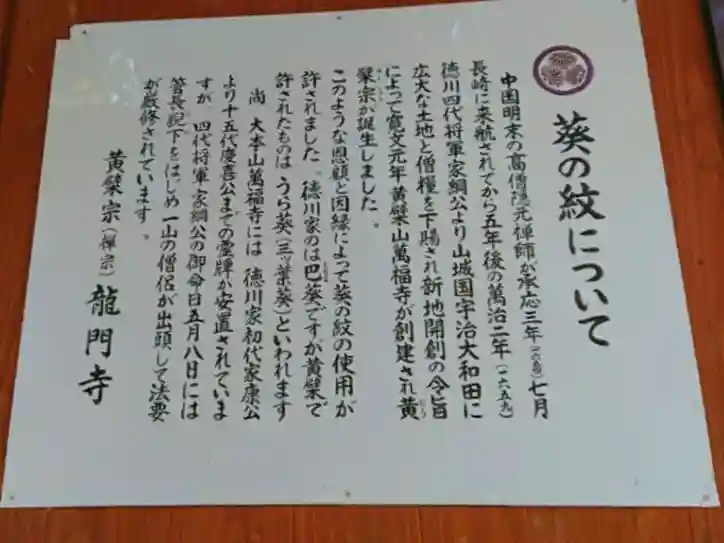 葵の紋について
中国明末の高僧隠元禅師が承応三年(一六五四)七月
長崎に来航されてから五年後の萬治二年(一六五九)
徳川四代将軍家綱公より山城国宇治大和田に
広大な土地と僧糧を下賜され新地開創の令旨
によって寛文元年黄檗山萬福寺が創建され黄
檗宗が誕生しました。
このような恩顧と因縁によって葵の紋の使用が
許されました。徳川家のは巴葵ですが黄檗で
許されたものは うら葵(三ッ葉葵)といわれます
尚 大本山萬福寺には 徳川家初代家康公
より十五代慶喜公までの霊牌が安置されていま
すが 四代将軍家綱公の御命日五月八日には
管長猊下をはじめ一山の僧侶が出頭して法要
が厳修されています。
黄檗宗(禅宗) 龍門寺